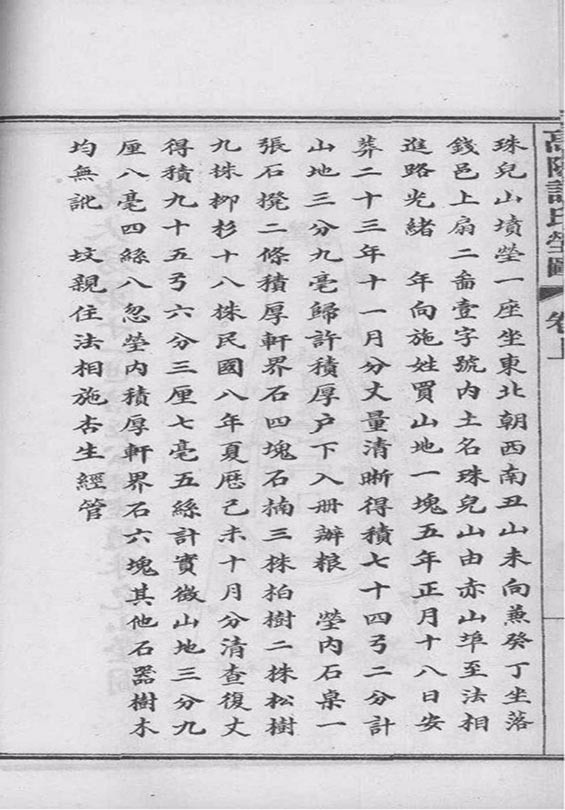 高陽許氏塋圖 卷上
珠兒山墳塋一座坐東北朝西南丑山未向兼癸丁坐落
錢邑上扇二畨壹字號內土名珠兒山由赤山埠至法相
進路光緒 年向施姓買山地一塊五年正月十八日安
葬二十三年十一月分丈量清晰得積七十四弓二分計
山地三分九毫歸許積厚户下入册辦粮 塋內石桌一
張石櫈二條積厚軒界石四塊石楠三株柏樹二株松樹
九株柳杉十八株民國八年夏厯己未十月分清查復丈
得積九十五弓六分三厘七毫五絲計實徵山地三分九
厘八毫四絲八忽塋內積厚軒界石六塊其他石器樹木
均無訛 坟親住法相施杏生經管